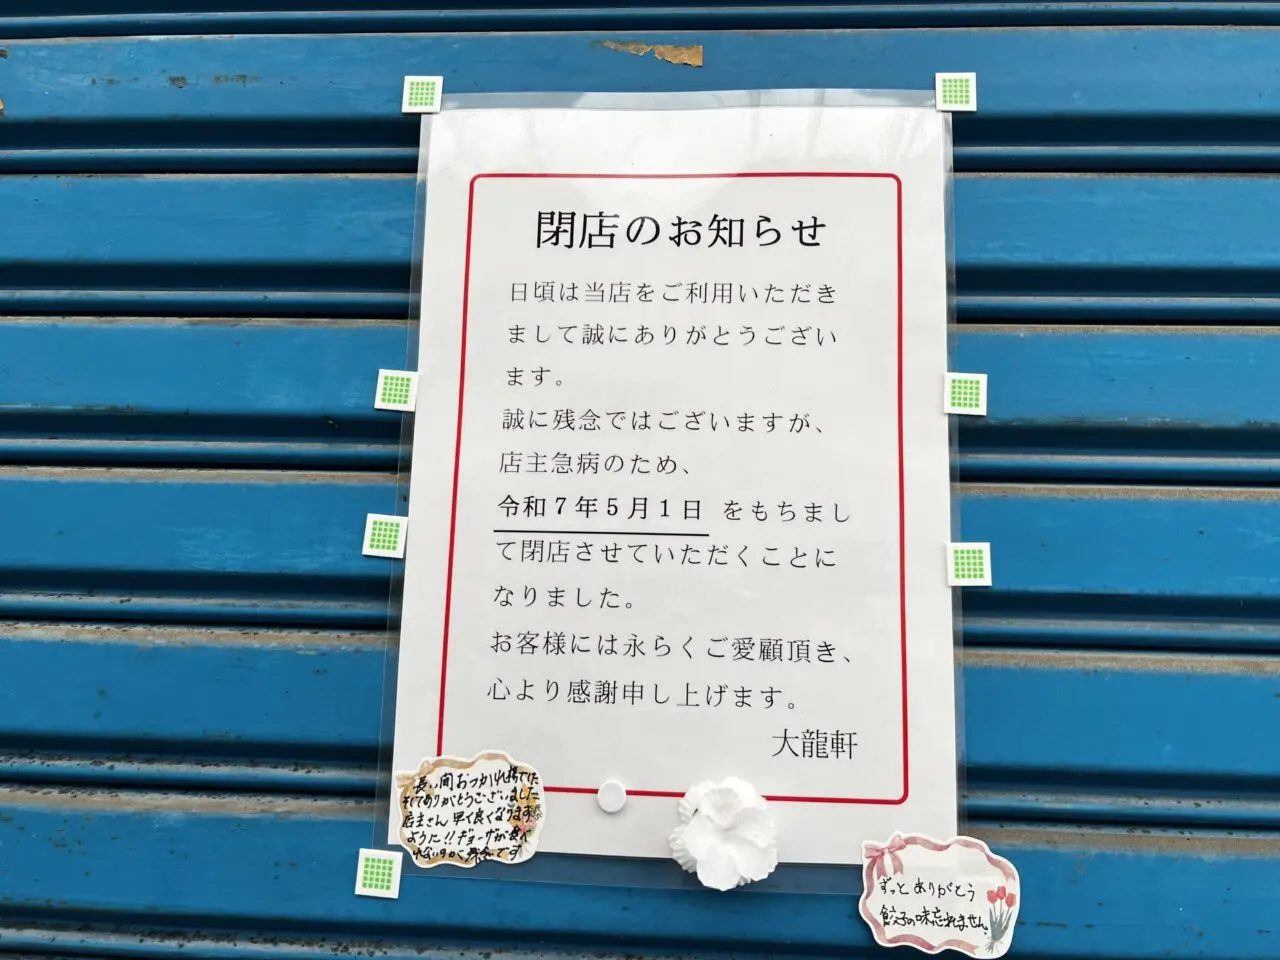 閉店のお知らせ
日頃は当店をご利用いただき
まして誠にありがとうござい
ます。
誠に残念ではございますが、
店主急病のため、
令和７年５月１日 をもちまし
て閉店させていただくことに
なりました。
お客様には永らくご愛顧頂き、
心より感謝申し上げます。
大龍軒
長い間おつかれ様でした
そしてありがとうございました
店主さん早く良くなります
ように!!ギョーザが食べ
れないのが残念です
ずっとありがとう
餃子の味忘れません。